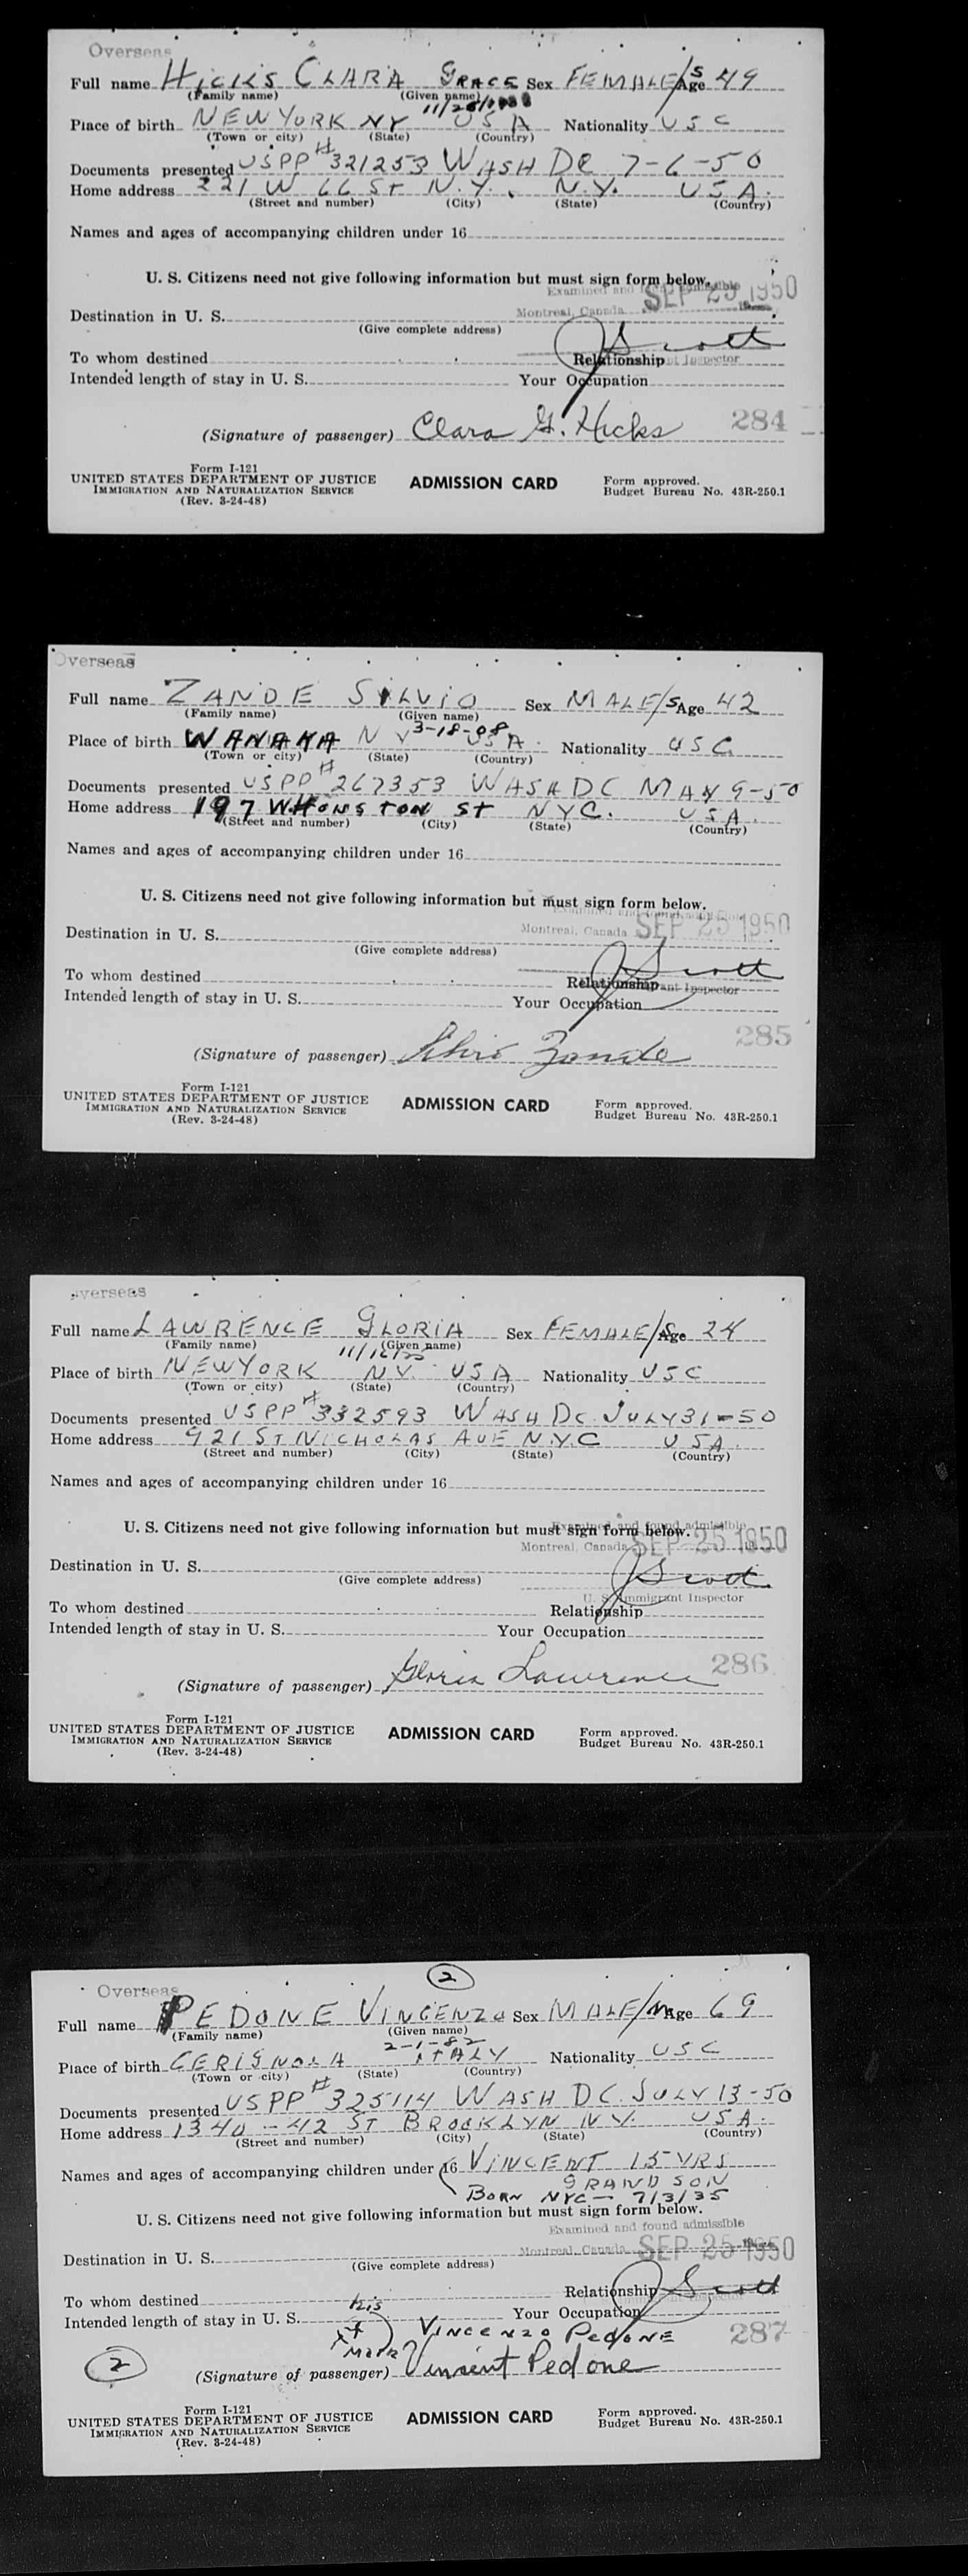 Overseas
Full name HICKS CLARA GRACE Sex FEMALE/S Age 49
(Family name) (Given name)
Place of birth NEW YORK NY USA Nationality USC
(Town or city) (State) (Country)
Documents presented USPP # 321253 WASH DC 7-6-50
Home address 221 W 66 St N.Y. N.Y. USA.
(Street and number) (City) (State) (Country)
Names and ages of accompanying children under 16
U. S. Citizens need not give following information but must sign form below.
Examined and found admissible
Montreal, Canada SEP 25 1950
Destination in U. S.
(Give complete address)
J Scott
To whom destined Relationship
Inspector
Intended length of stay in U. S. Your Occupation
(Signature of passenger) Clara G. Hicks 284
Form I-121
UNITED STATES DEPARTMENT OF JUSTICE ADMISSION CARD Form approved.
IMMIGRATION AND NATURALIZATION SERVICE Budget Bureau No. 43R-250.1
(Rev. 3-24-48)
Overseas
Full name ZANDE SILVIO Sex MALE/S Age 42
(Family name) (Given name)
3-18-08
Place of birth WANAKA NY USA. Nationality USC.
(Town or city) (State) (Country)
Documents presented USPP # 267353 WASH DC MAY 9-50
Home address 197 W HOUSTON St NYC. USA.
(Street and number) (City) (State) (Country)
Names and ages of accompanying children under 16
U. S. Citizens need not give following information but must sign form below.
Examined and found admissible
Montreal, Canada SEP 25 1950
Destination in U. S.
(Give complete address)
J Scott
To whom destined Relationship
Inspector
Intended length of stay in U. S. Your Occupation
285
(Signature of passenger) Silvio Zande
Form I-121
UNITED STATES DEPARTMENT OF JUSTICE ADMISSION CARD Form approved.
IMMIGRATION AND NATURALIZATION SERVICE Budget Bureau No. 43R-250.1
(Rev. 3-24-48)
Overseas
Full name LAWRENCE GLORIA Sex FEMALE/S Age 24
(Family name) (Given name)
Place of birth NEW YORK NY. USA Nationality USC
(Town or city) (State) (Country)
Documents presented USPP # 332593 WASH DC JULY 31-50
Home address 921 ST NICHOLAS AVE N.Y.C USA.
(Street and number) (City) (State) (Country)
Names and ages of accompanying children under 16
Examined and found admissible
U. S. Citizens need not give following information but must sign form below.
Montreal, Canada SEP 25 1950
Destination in U. S.
(Give complete address)
J Scott
U. S. Immigrant Inspector
To whom destined Relationship
Intended length of stay in U. S. Your Occupation
286
(Signature of passenger) Gloria Lawrence
Form I-121
UNITED STATES DEPARTMENT OF JUSTICE ADMISSION CARD Form approved.
IMMIGRATION AND NATURALIZATION SERVICE Budget Bureau No. 43R-250.1
(Rev. 3-24-48)
2
Overseas
Full name PEDONE VINCENZO Sex MALE/M Age 69
(Family name) (Given name)
2-1-82
Place of birth CERIGNOLA ITALY Nationality USC
(Town or city) (State) (Country)
Documents presented USPP # 325114 WASH DC. JULY 13-50
Home address 1340-42 ST BROOKLYN NY. USA.
(Street and number) (City) (State) (Country)
Names and ages of accompanying children under 16 VINCENT 15 YRS
GRANDSON
BORN NYC - 7/3/35
U. S. Citizens need not give following information but must sign form below.
Examined and found admissible
Montreal, Canada SEP 25 1950
Destination in U. S.
(Give complete address)
To whom destined Relationship J Scott
Inspector
his
Intended length of stay in U. S. Your Occupation
X VINCENZO PEDONE 287
mark
2 (Signature of passenger) Vincent Pedone
Form I-121
UNITED STATES DEPARTMENT OF JUSTICE ADMISSION CARD Form approved.
IMMIGRATION AND NATURALIZATION SERVICE Budget Bureau No. 43R-250.1
(Rev. 3-24-48)